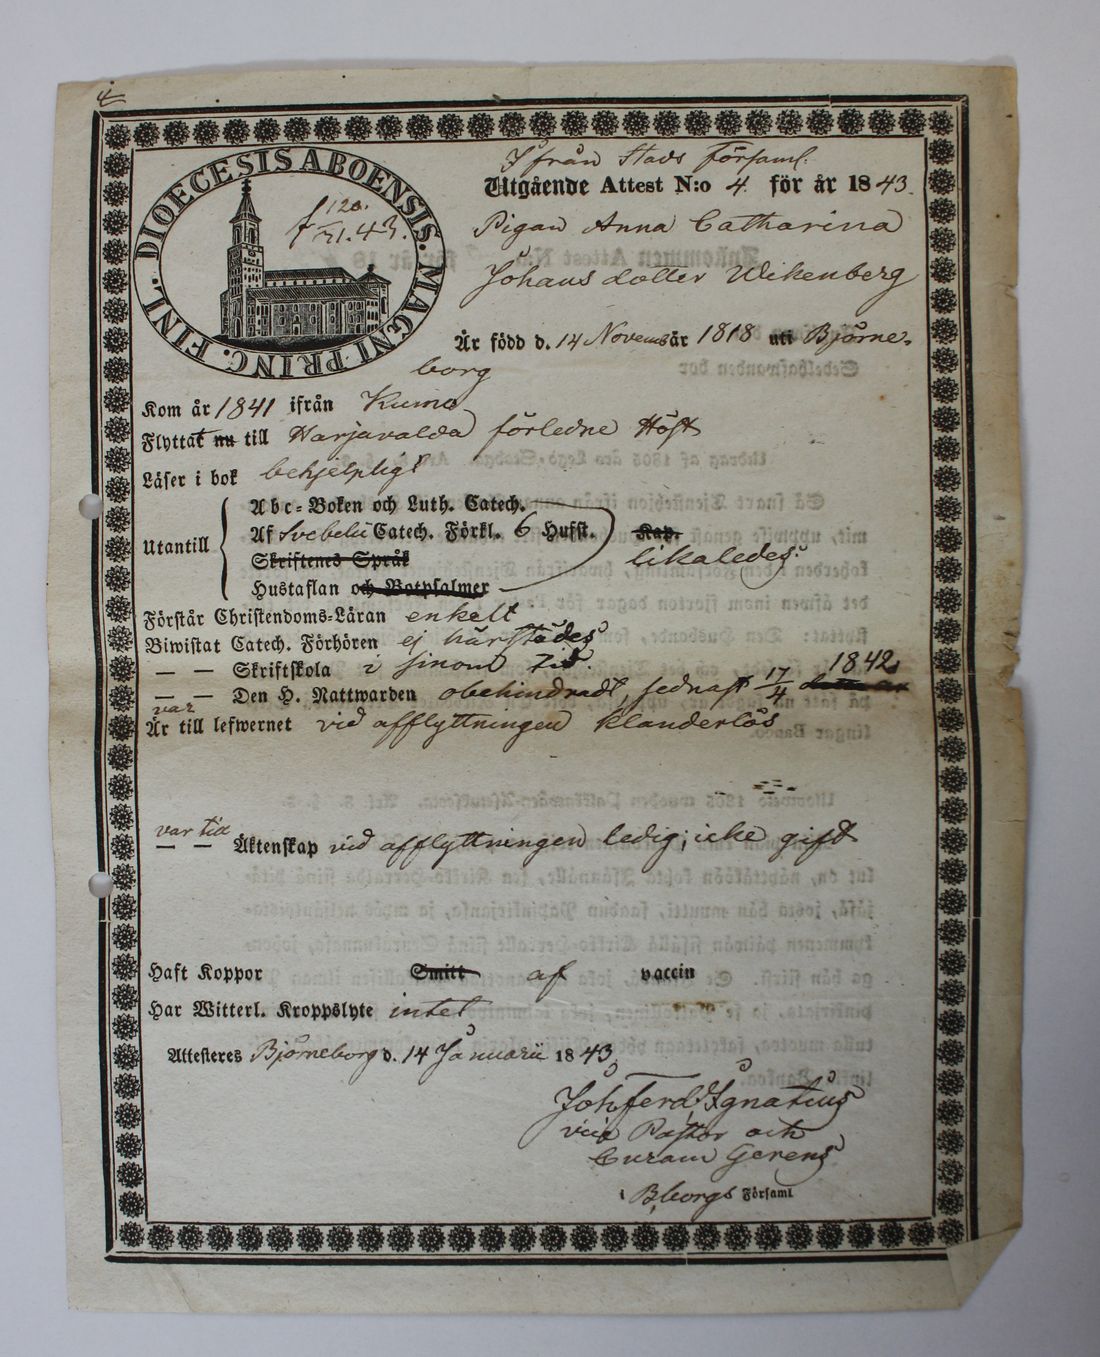 4
DIOECESIS ABOENSIS. MAGNI PRINC. FINL.
f 120.
71.43.
Ifrån Stads församl.
Utgående Attest N:o 4 för år 1843.
Pigan Anna Catharina
Johans dotter Wikenberg
Är född d. 14 Novemb år 1818 uti Björne-
borg
Kom år 1841 ifrån Kumo
Flyttat nu till Harjavalda förledne Höst
Läser i bok behjelpligt
Utantill
Abc-Boken och Luth. Catech.
Af Svebelii Catech. Förkl. 6 Hufst. Kap.
likaledes.
Skriftens Språk
Hustaflan och Botpsalmer
Förstår Christendoms-Läran enkelt
Biwistat Catech. Förhören ej härstädes
— — Skriftskola i sinom tid.
— — Den H. Nattwarden obehindradt, sednast 17/4 1842.
var
Är till lefwernet vid afflyttningen klanderlös
var till
— — Äktenskap vid afflyttningen ledig; icke gift
Haft Koppor Smitt af vaccin
Har Witterl. Kroppslyte intet
Attesteres Björneborg d. 14 Januarii 1843.
Joh Ferd Ignatius
vice Pastor och
Curam Gerens
i B,borgs Församl